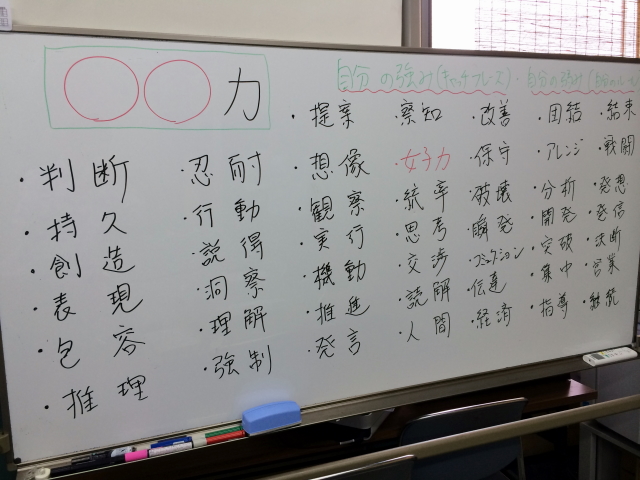 〇〇力
自分の強み(キャッチフレーズ)・自分の強み
・判断
・持久
・創造
・表現
・包容
・推理
・忍耐
・行動
・説得
・洞察
・理解
・強制
・提案
・想像
・観察
・実行
・機動
・推進
・発言
・察知
・女子力
・統率
・思考
・交渉
・読解
・人間
・改善
・保守
・破壊
・瞬発
・コミュニケーション
・伝達
・経済
・団結
・アレンジ
・分析
・開発
・突破
・集中
・指導
・結束
・戦闘
・発想
・発信
・決断
・営業
・継続